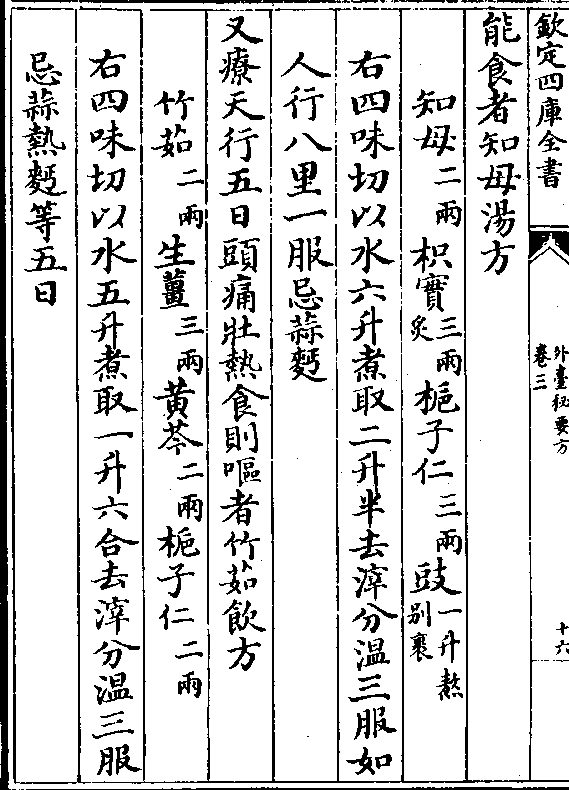 欽定四庫全書
外臺秘要方
卷三
十六
能食者知母湯方
知母二兩枳實三兩炙梔子仁三兩豉一升熬別裹
右四味切以水六升煮取二升半去滓分温三服如
人行八里一服忌蒜麪
又療天行五日頭痛壯熱食則嘔者竹茹飲方
竹茹二兩生薑三兩黃芩二兩梔子仁二兩
右四味切以水五升煮取一升六合去滓分温三服
忌蒜熱麪等五日